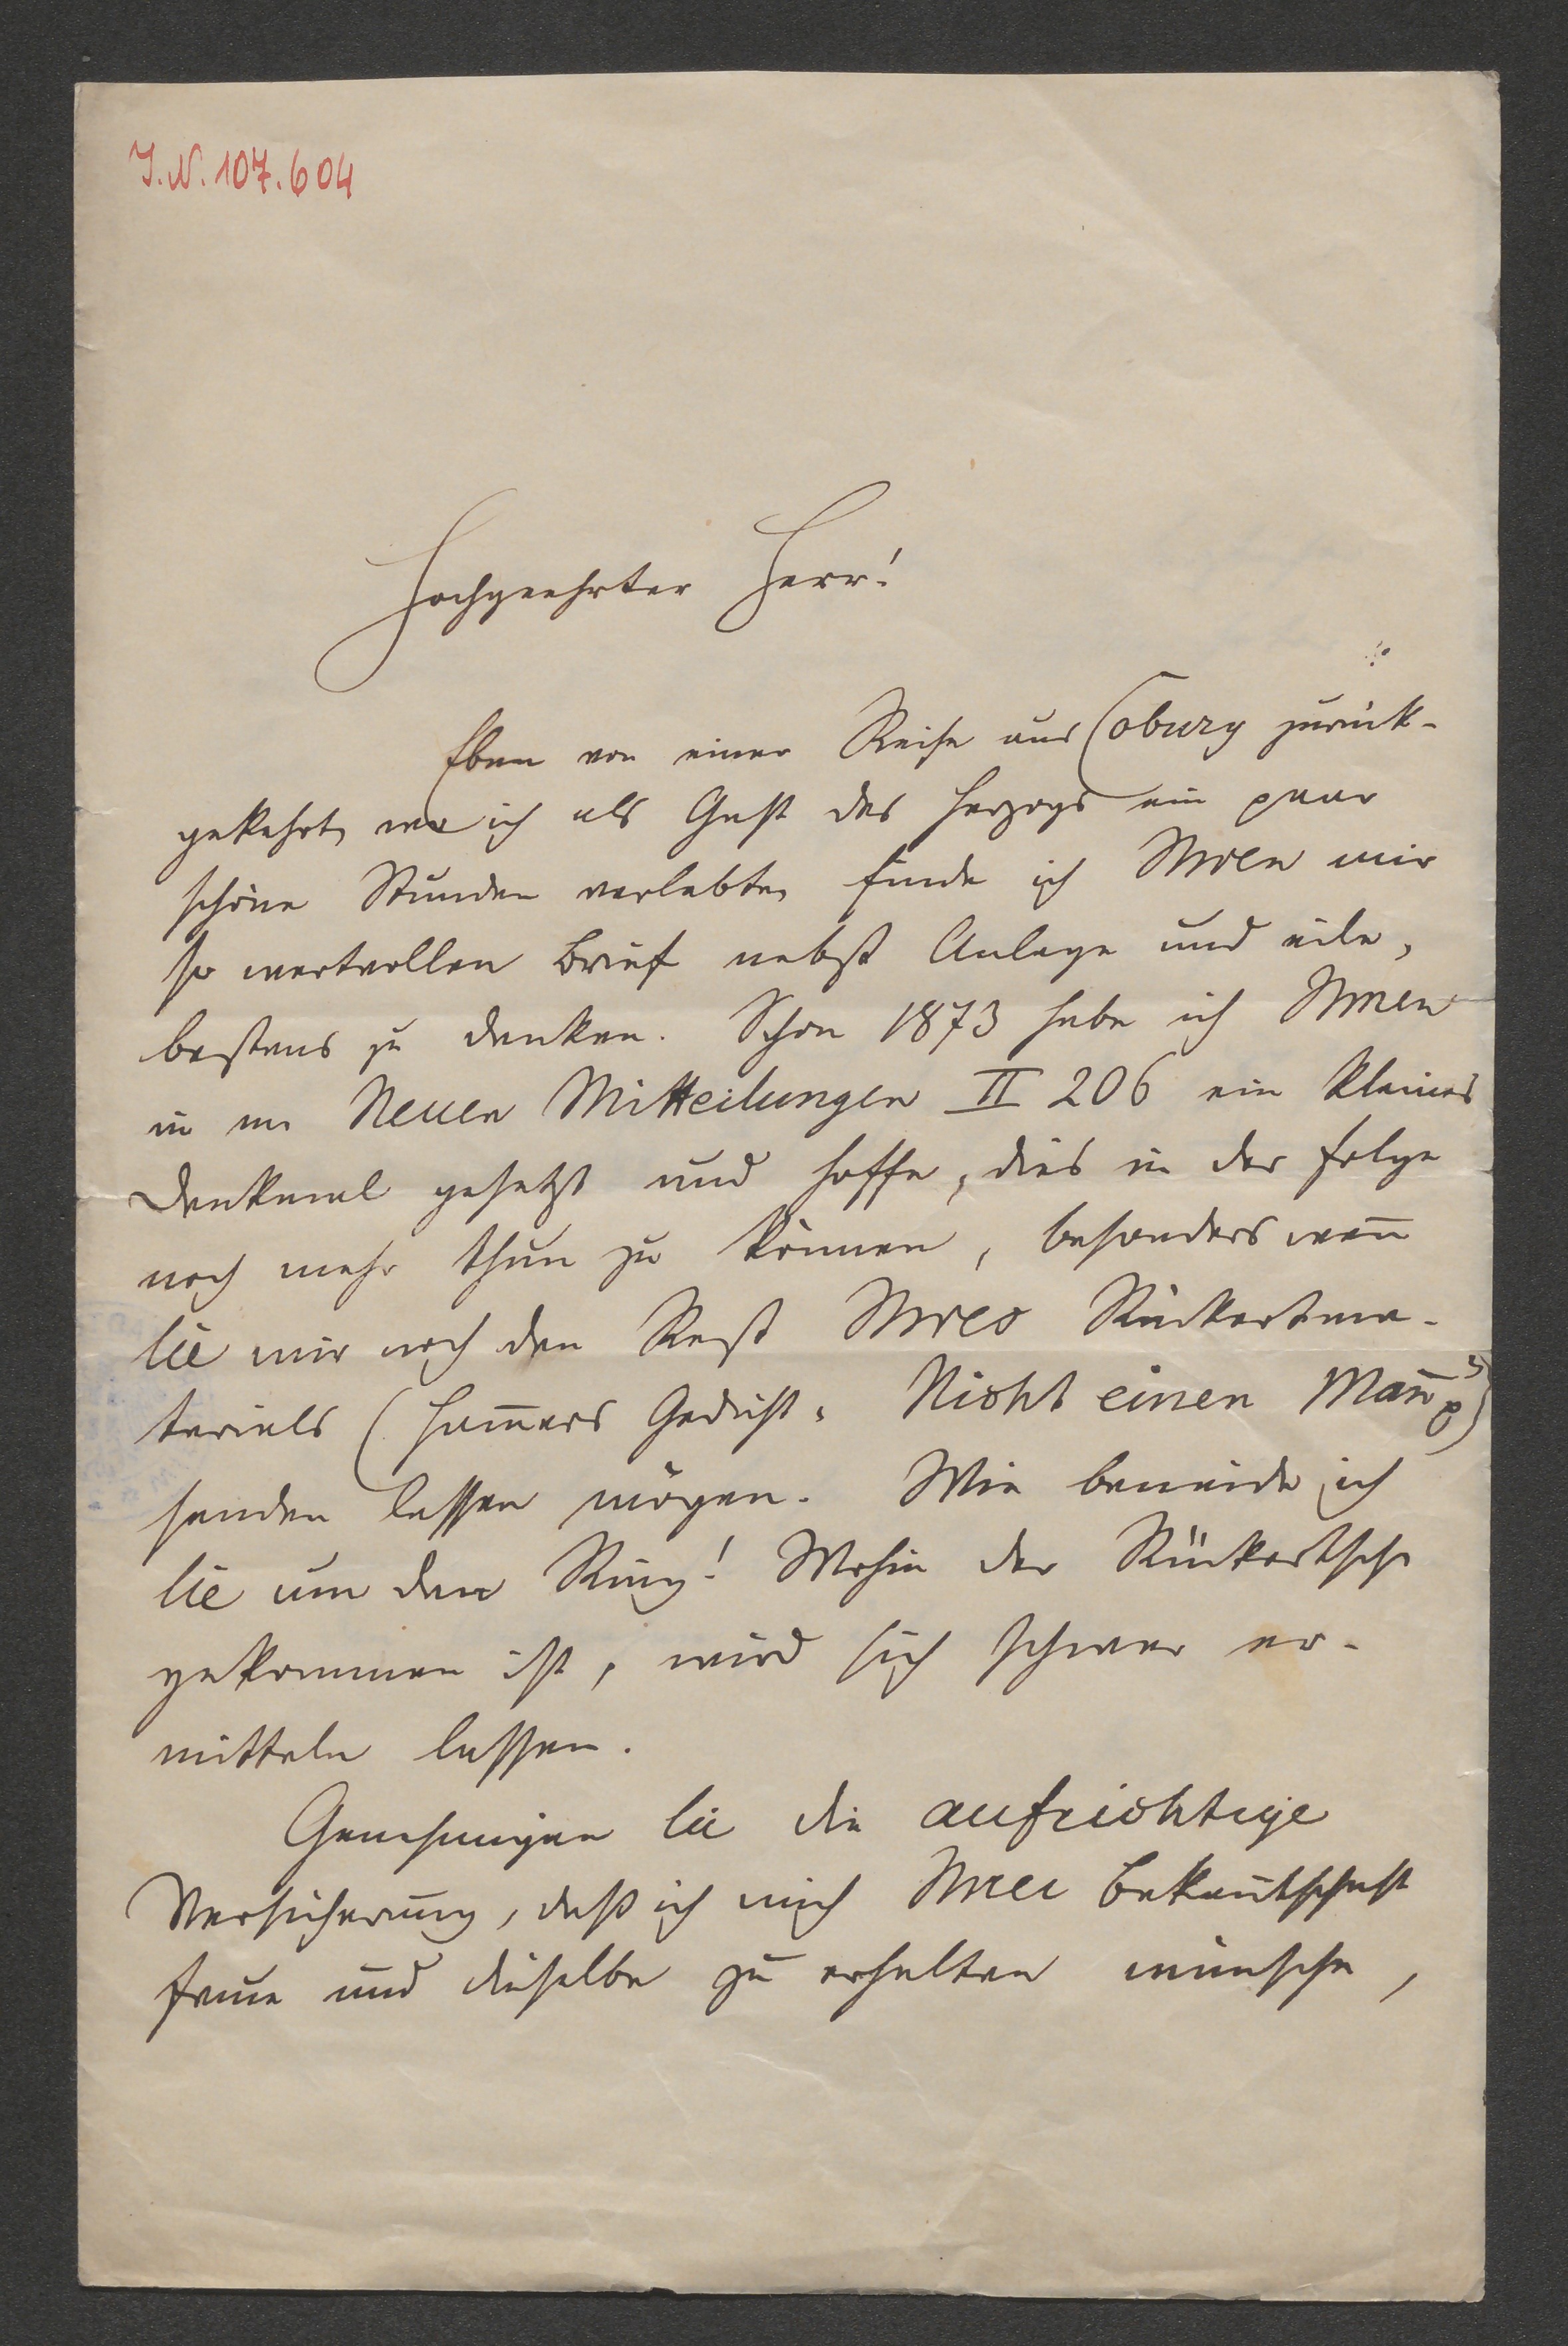 J.N. 107.604
Hochgeehrter Herr!
Eben von einer Reise aus Coburg zurück-
gekehrt, wo ich als Gast des Herzogs ein paar
schöne Stunden verlebte, finde ich Ihren mir
so wertvollen Brief nebst Anlage und eile,
bestens zu danken. Schon 1873 habe ich Ihnen
in m. Neuen Mitteilungen II 206 ein kleines
Denkmal gesetzt und hoffe, dies in der Folge
noch mehr thun zu können, besonders wen̄
Sie mir noch den Rest Ihres Rückertma-
terials (Ham̄ers Gedicht, Nicht einen Man̄ p)
senden lassen mögen. Wie beneide ich
Sie um den Ring! Wohin der Rückertsche
gekommen ist, wird sich schwer er-
mitteln lassen.
Genehmigen Sie die aufrichtige
Versicherung, daß ich mich Ihrer Bekan̄tschaft
freue und dieselbe zu erhalten wünsche,